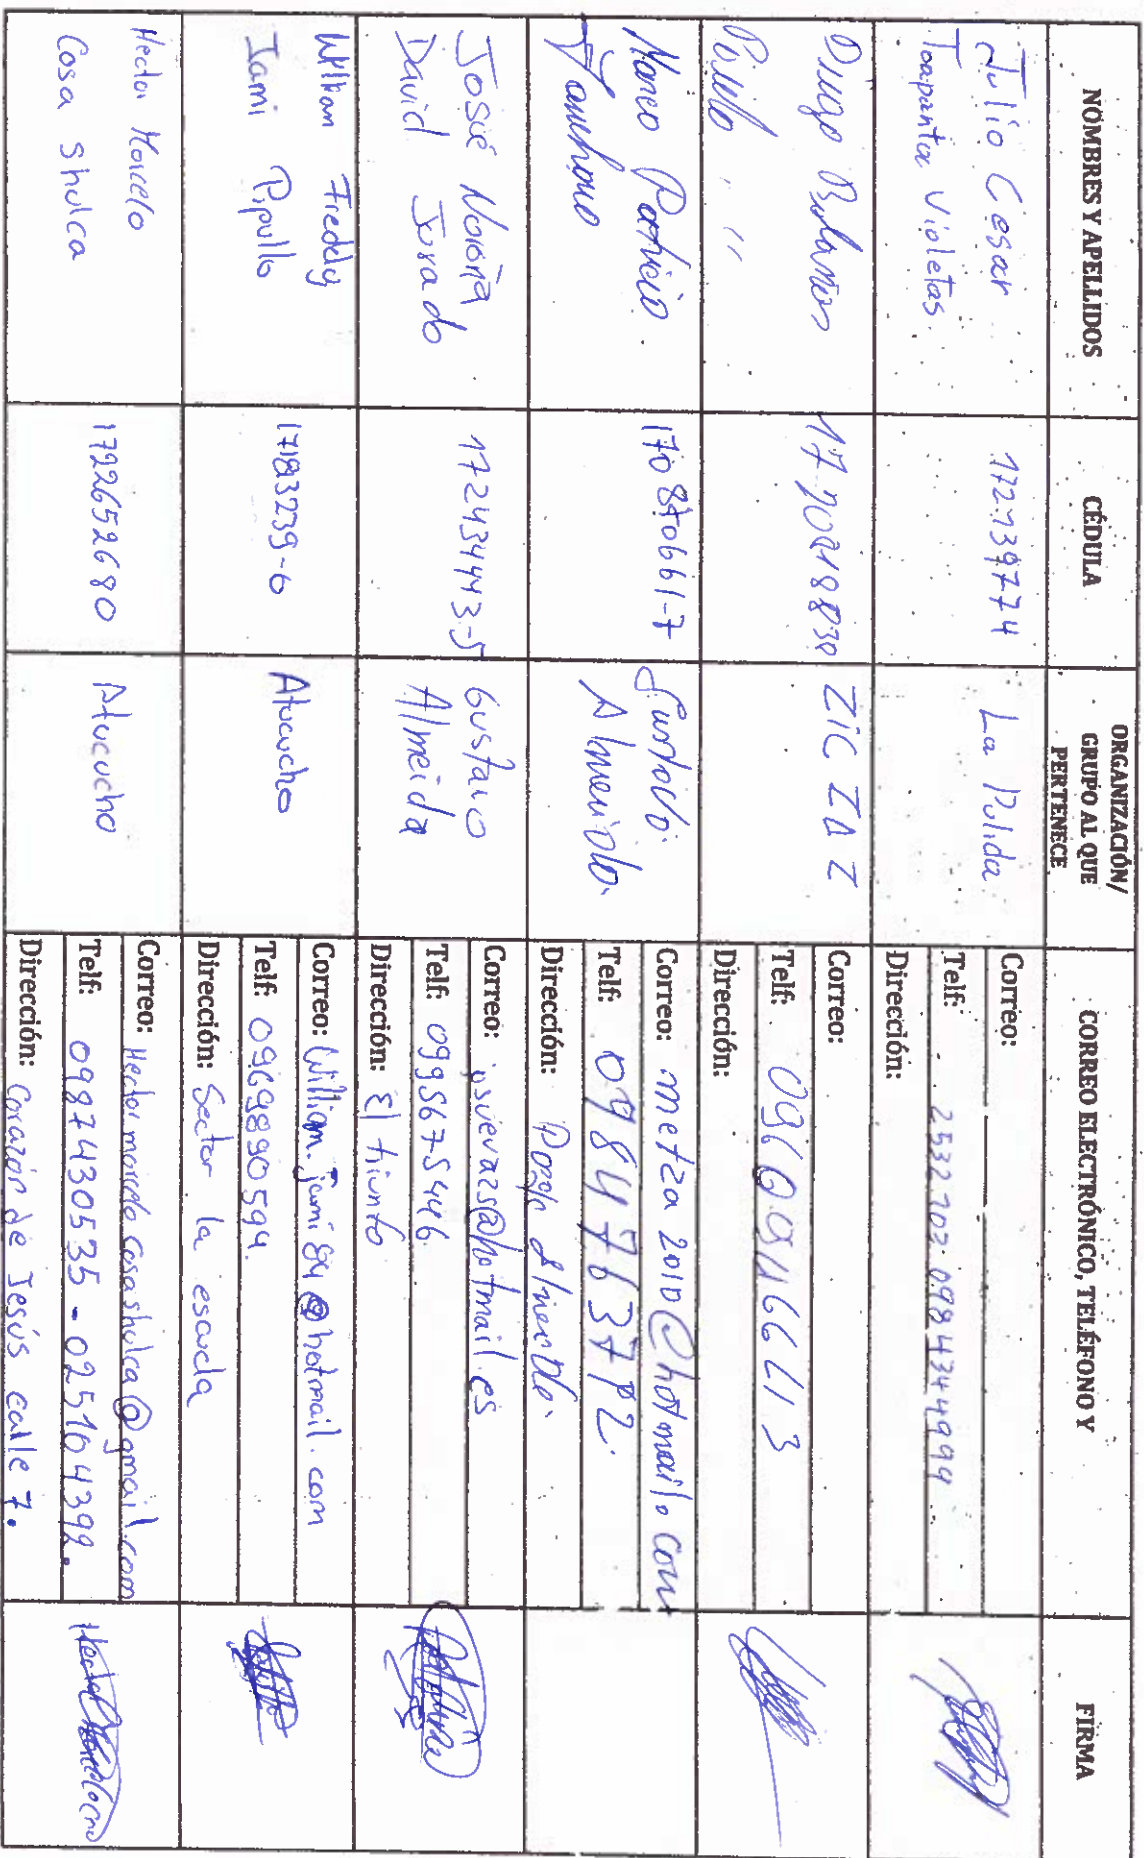 NOMBRES Y APELLIDOS
CÉDULA
ORGANIZACIÓN/
GRUPO AL QUE
PERTENECE
CORREO ELECTRÓNICO, TELÉFONO Y
FIRMA
Julio Cesar
Toapanta Violetas
172739774
La Pulida
Correo:
Telf: 2532702 0984344999
Dirección:
Diego Bolaños
ZIC ZA Z
Correo:
Telf:
Dirección:
Marco Patricio
170870661-7
Gustavo
Almeida
Correo: metza2010@hotmail.com
Telf: 0984763712.
Dirección:
Josué Noroña
David Jurado
172434443-5
Gustavo
Almeida
Correo: josuevazs@hotmail.es
Telf: 0995675446
Dirección: El triunfo
William Freddy
Iami Pipullo
171823239-0
Atucucho
Correo: William.jami84@hotmail.com
Telf: 0969890594.
Dirección: Sector la escuela
Hector Marcelo
Cosa Shulca
1722652680
Atucucho
Correo: Hectormarcelocosashulca@gmail.com
Telf: 0987430535-0225104392.
Dirección: Corazón de Jesús calle 7.